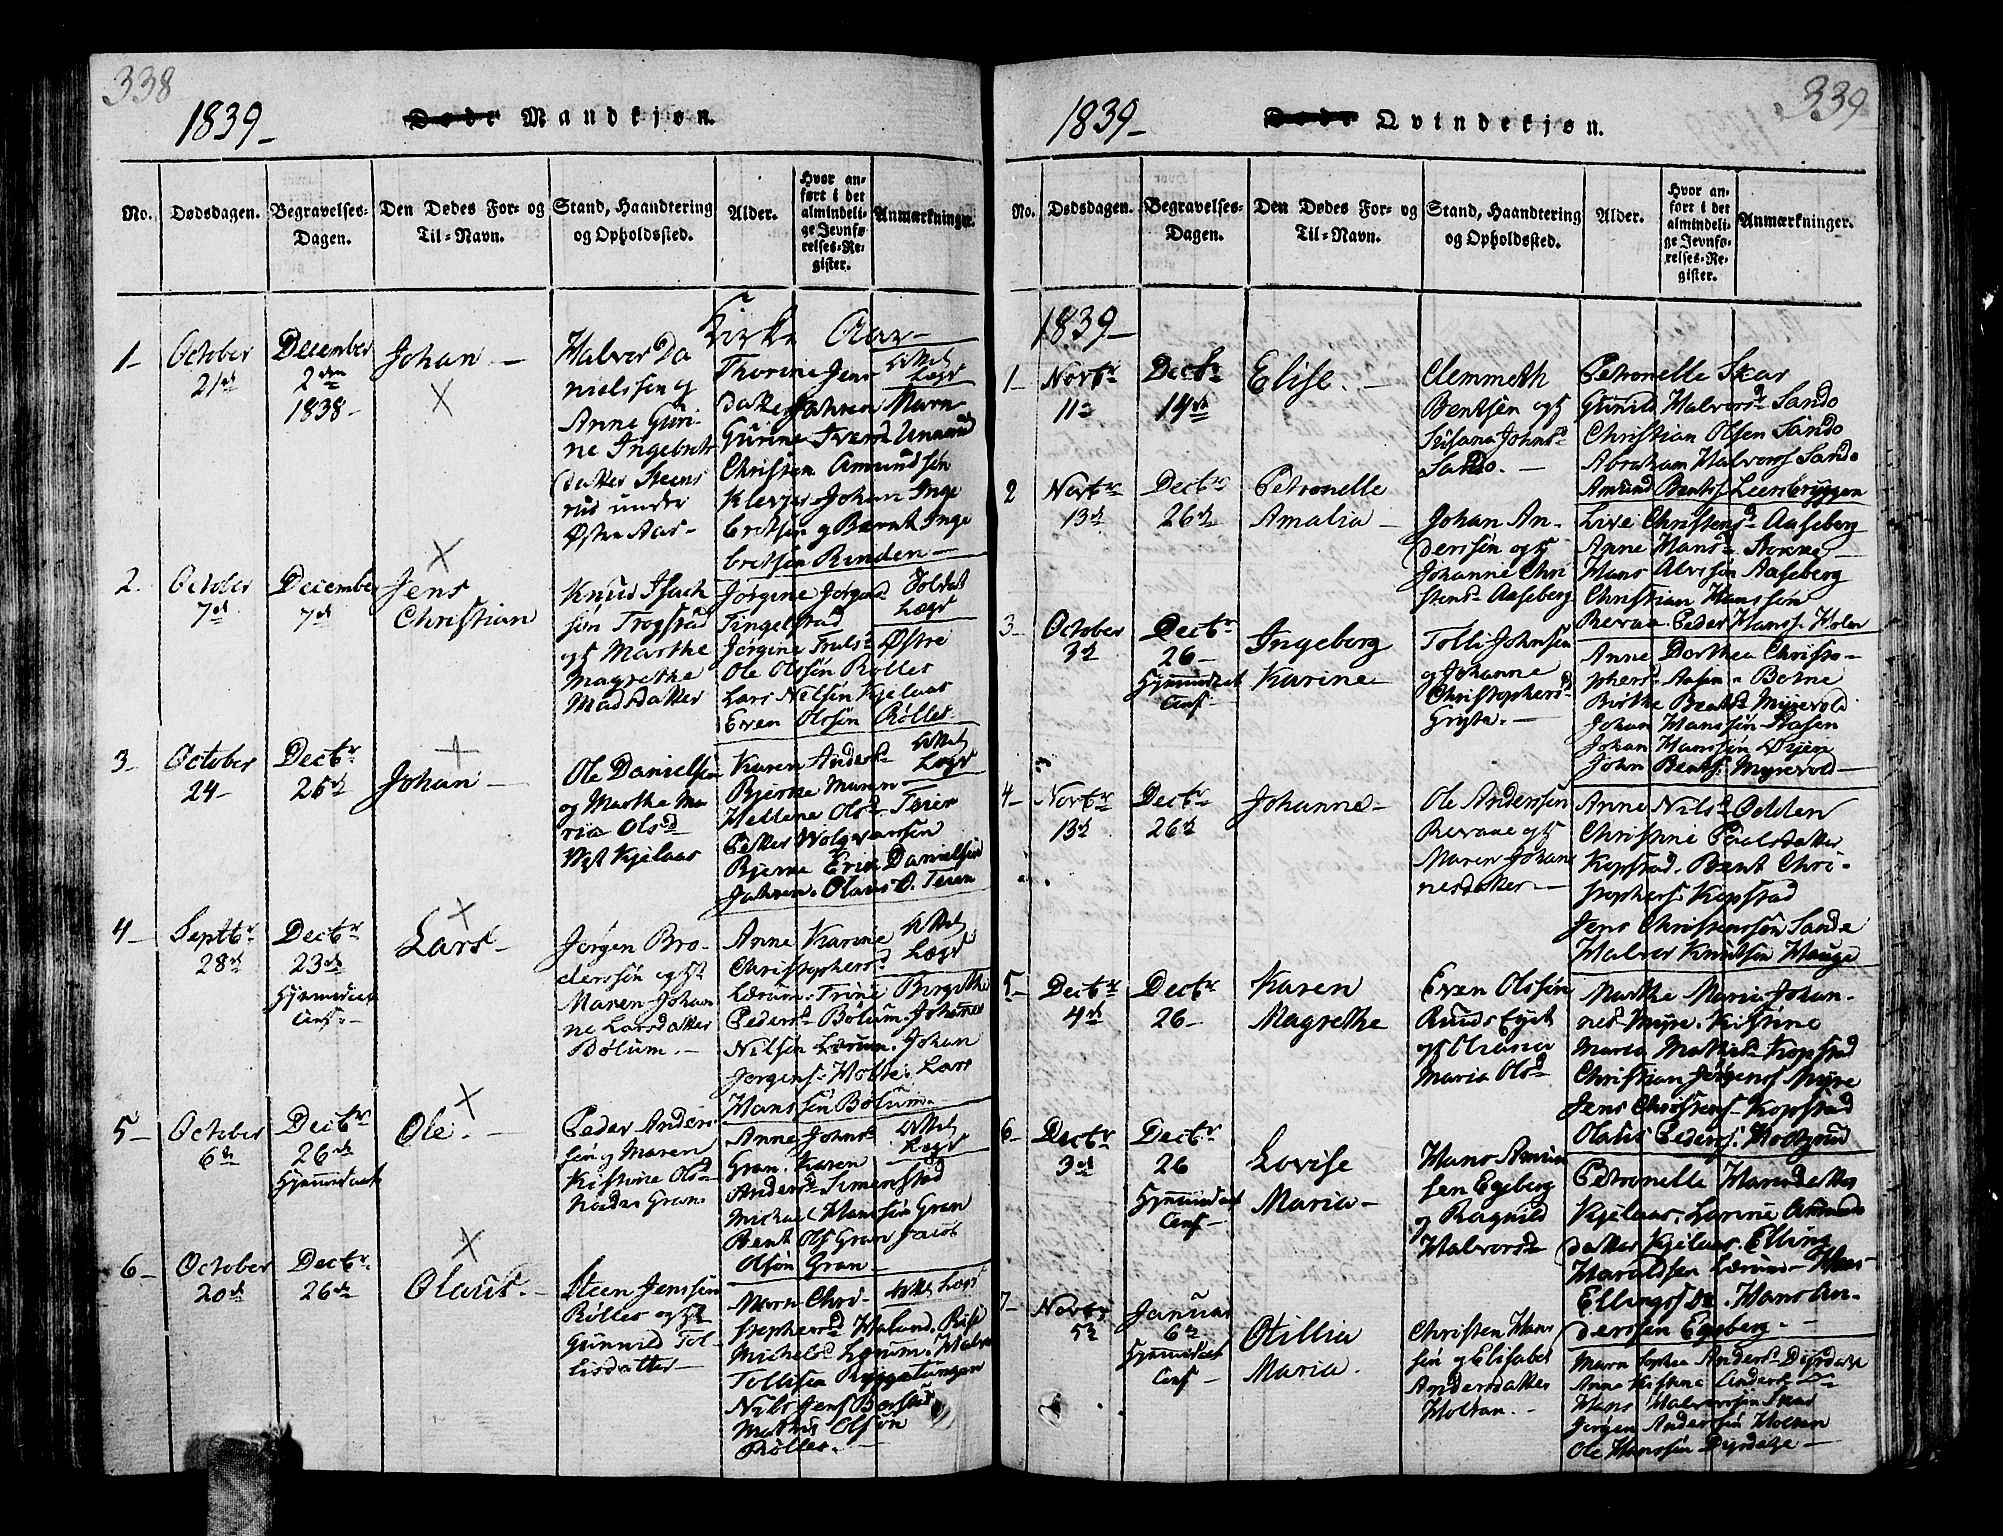 338
1839 -
Døde Mandkjøn.
No.
Dødsdagen.
Begravelses-
Dagen.
Den Dødes For- og
Til-Navn.
Stand, Haandtering
og Opholdssted.
Alder.
Hvor an-
ført i det
almindeli-
ge Jevnfø-
relses-Re-
gister.
Anmærkninger.
Kirke Aar -
1 -
October
21d
December
2den
1838 -
Johan -
Halvor Da
nielssen g
Anne Guri-
ne Ingebret
datter Steens
rud under
Østre Aas -
Thorine Jens
datter Jahren Maren
Gurine Iversd
Christen Amundsen
Johan Inge
bretsen g Bernt Inge
bretsen Renden -
2.
October
7d
December
7d
Jens
Christian
Knud Isach
sen Trogstad
og Marthe
Magrethe
Madsdatter
Jørgine Jørgensd
Tingelstad
Jørgine Trulsd Østre
Ole Olssen Røller
Lars Nilsen Kjelaas
Even Olssen Røller
Soldat
Lægd
3 -
October
24 -
Dectr
25d
Johan -
Ole Danielsen
og Marthe Ma
ria Olsd
Vest Kjelaas
Karen Andersd
Bjerke Maren
Hellene Olsd Teien
Petter Wolgvarssen
Bjerke Erik Danielsen
Jahren. Olaus O. Teien
Lægd
4 -
Septbr
28d
Dectr
23d
Hjemmedøbt
Conf. -
Lars -
Jørgen Bro-
derssen og
Maren Johan
ne Larsdatter
Bolum. -
Anne Karine
Christophersd
Lærum. Trine Birgithe
Pedersd Bolum. Johannes
Nilsen Lærum. Johan
Jørgens. Holte. Lars
Hanssen Bolum. -
Lægd
5 -
October
6d
Dectr
26d
Hjemmedøbt
Ole. -
Peder Anders
sen g Maren
Kistine Ols
Gran
Anne Johnsd
Gran. Karen
Andersd Simenstad
Michael Hanssen Gran
Bent Ols Gran Jacob
Olsen Gran -
Lægd
6 -
October
20d
Dectr
26d
Olaus. -
Steen Jenssen
Røller og
Gunnild Tol-
lisdatter -
Maren Chri-
stophersd
Michelsd Lærum. Halvor
Tollisen Ryggetangen
Nils Jens
Mathis Olsen
Røller. -
Lægd
339
1839 -
Døde Qvindekjøn.
No.
Dødsdagen.
Begravelses-
Dagen.
Den Dødes For- og
Til-Navn.
Stand, Haandtering
og Opholdssted.
Alder.
Hvor an-
ført i det
almindeli-
ge Jevnfø-
relses-Re-
gister.
Anmærkninger.
1839 -
1 -
Novbr
11
Dectr
14d
Elise. -
Clemmeth
Bentsen og
Susana Johnsd
Sando. -
Petronelle Skar
Gunild Halvorsd Sando
Christian Olsen Sando
Abraham Halvors Sando
Amund Bents. Leersbryggen
2
Novbr
13d
Dectr
26d
Petronelle
Amalia -
Johan An-
derssen og
Johanne Chri
stensd Aaseberg
Live Christensd Aaseberg
Anne Hansd Stokke -
Hans Alvesen Aaseberg
Christian Hanssen
Revaa. Peder Hanss. Holen
3 -
October
3d
Dectr
26 -
Hjemmedøbt
Conf -
Ingeborg
Karine -
Tolli Johnsen
og Johanne
Christophersd
Grysta. -
Anne Dorthea Christo-
phersd Aasen - Botne
Birthe Bentsd Myrevold
Johan Hanssen Aasen
Johan Hanssen
John Bents. Myrevold -
4 -
Novbr
13d
Dectr
26d
Johanne -
Ole Anderssen
Revaae og
Maren Johan
nesdatter. -
Anne Nilsd Odden
Christine Paalsdatter
Kopstad. Bent Chri-
stophers. Kopstad
Jens Christenssen Sande
Halvor Knutsen Hauge
5 -
Dectr
4d
Dectr
26 -
Karen
Magrethe
Even Olssen
Ruuds Eget
og
Maria Olsd
Marthe Maria Johan-
nesd Myre. Kistine
Maria Mathisd Kopstad
Christian Jørgenss Myre
Jens Christens. Kopstad
Olaus Peders.
6 -
Dectr
3d
Dectr
26
Hjemmedøbt
Conf -
Lovise
Maria -
Hans
sen Egeberg
og Ragnild
Halvorsd
Petronelle Hansdatter
Kjelaas. Lorine Amunds
datter Kjelaas. Elling
Haraldsen Lærum - Hans
Ellings Do. Hans An-
derssen Egeberg. -
7 -
Novbr
5d
Januar
6d
Hjemmedøbt
Conf -
Otillia
Maria -
Christen Hans
sen og Elisabet
Andersdatter
Holtan. -
Maren Sophia Andersd
Anne Kistine Andersd Do
Hans Halvorssen Skar
Jørgen Anderssen Holtan
Ole Hanssen